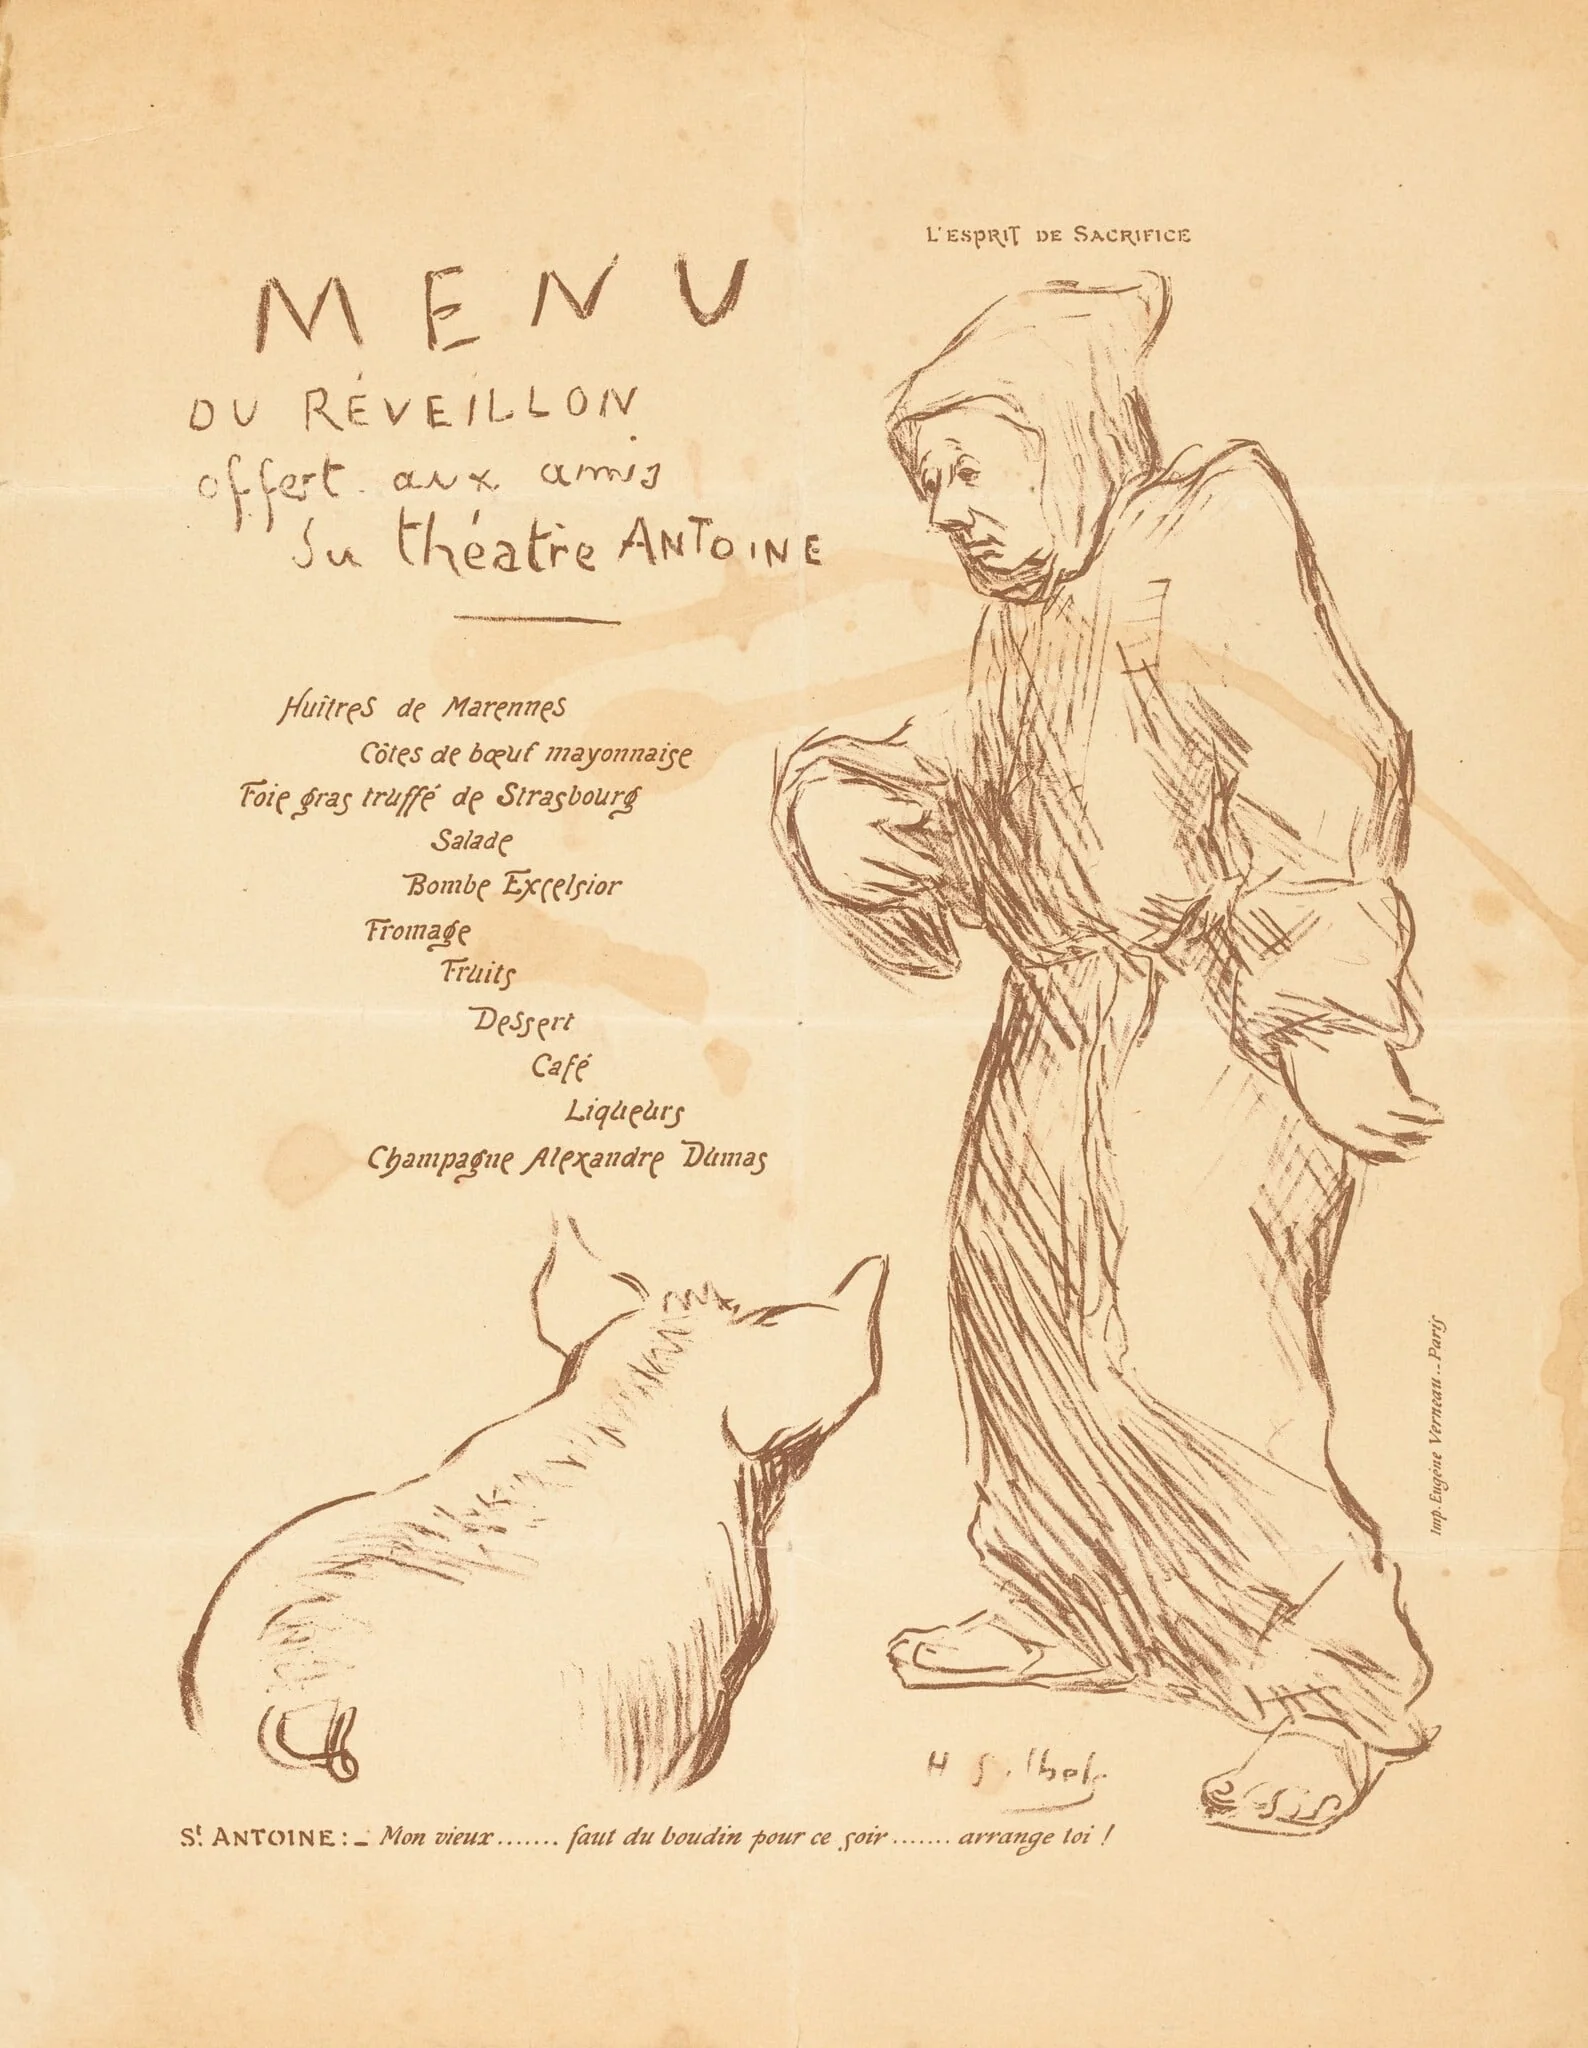 MENU
DU RÉVEILLON
offert aux amis
du théatre ANTOINE
Huîtres de Marennes
Côtes de bœuf mayonnaise
Foie gras truffé de Strasbourg
Salade
Bombe Excelsior
Fromage
Fruits
Dessert
Café
Liqueurs
Champagne Alexandre Dumas
L'ESPRIT DE SACRIFICE
Imp. Eugène Verneau - Paris
H
St ANTOINE: _ Mon vieux ....... faut du boudin pour ce soir ....... arrange toi !